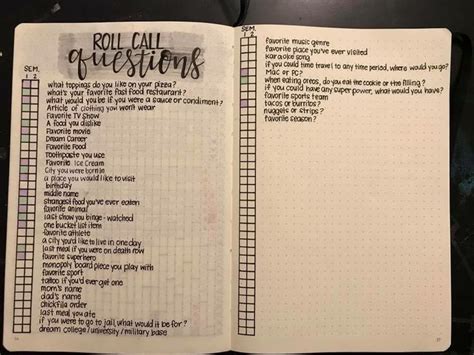 ROLL CALL
questions
SEM.
1 2
what toppings do you like on your pizza?
what's your favorite fast food restaurant?
what would you be if you were a sauce or condiment?
Article of clothing you won't wear
Favorite TV Show
A food you dislike
Favorite movie
Dream Career
Favorite Food
Toothpaste you use
Favorite Ice Cream
City you were born in
a place you would like to visit
birthday
middle name
strangest food you've ever eaten
favorite animal
last show you binge-watched
one bucket list item
favorite athlete
a city you'd like to live in one day
last meal if you were on death row
favorite superhero
monopoly board piece you play with
favorite sport
tattoo if you'd ever get one
mom's name
dad's name
chickfila order
last meal you ate
if you were to go to jail, what would it be for?
dream college/university/military base
SEM.
1 2
favorite music genre
favorite place you've ever visited
karaoke song
if you could time travel to any time period, where would you go?
Mac or PC?
when eating oreos, do you eat the cookie or the filling?
if you could have any super power, what would you have?
favorite sports team
tacos or burritos?
nuggets or strips?
favorite season?